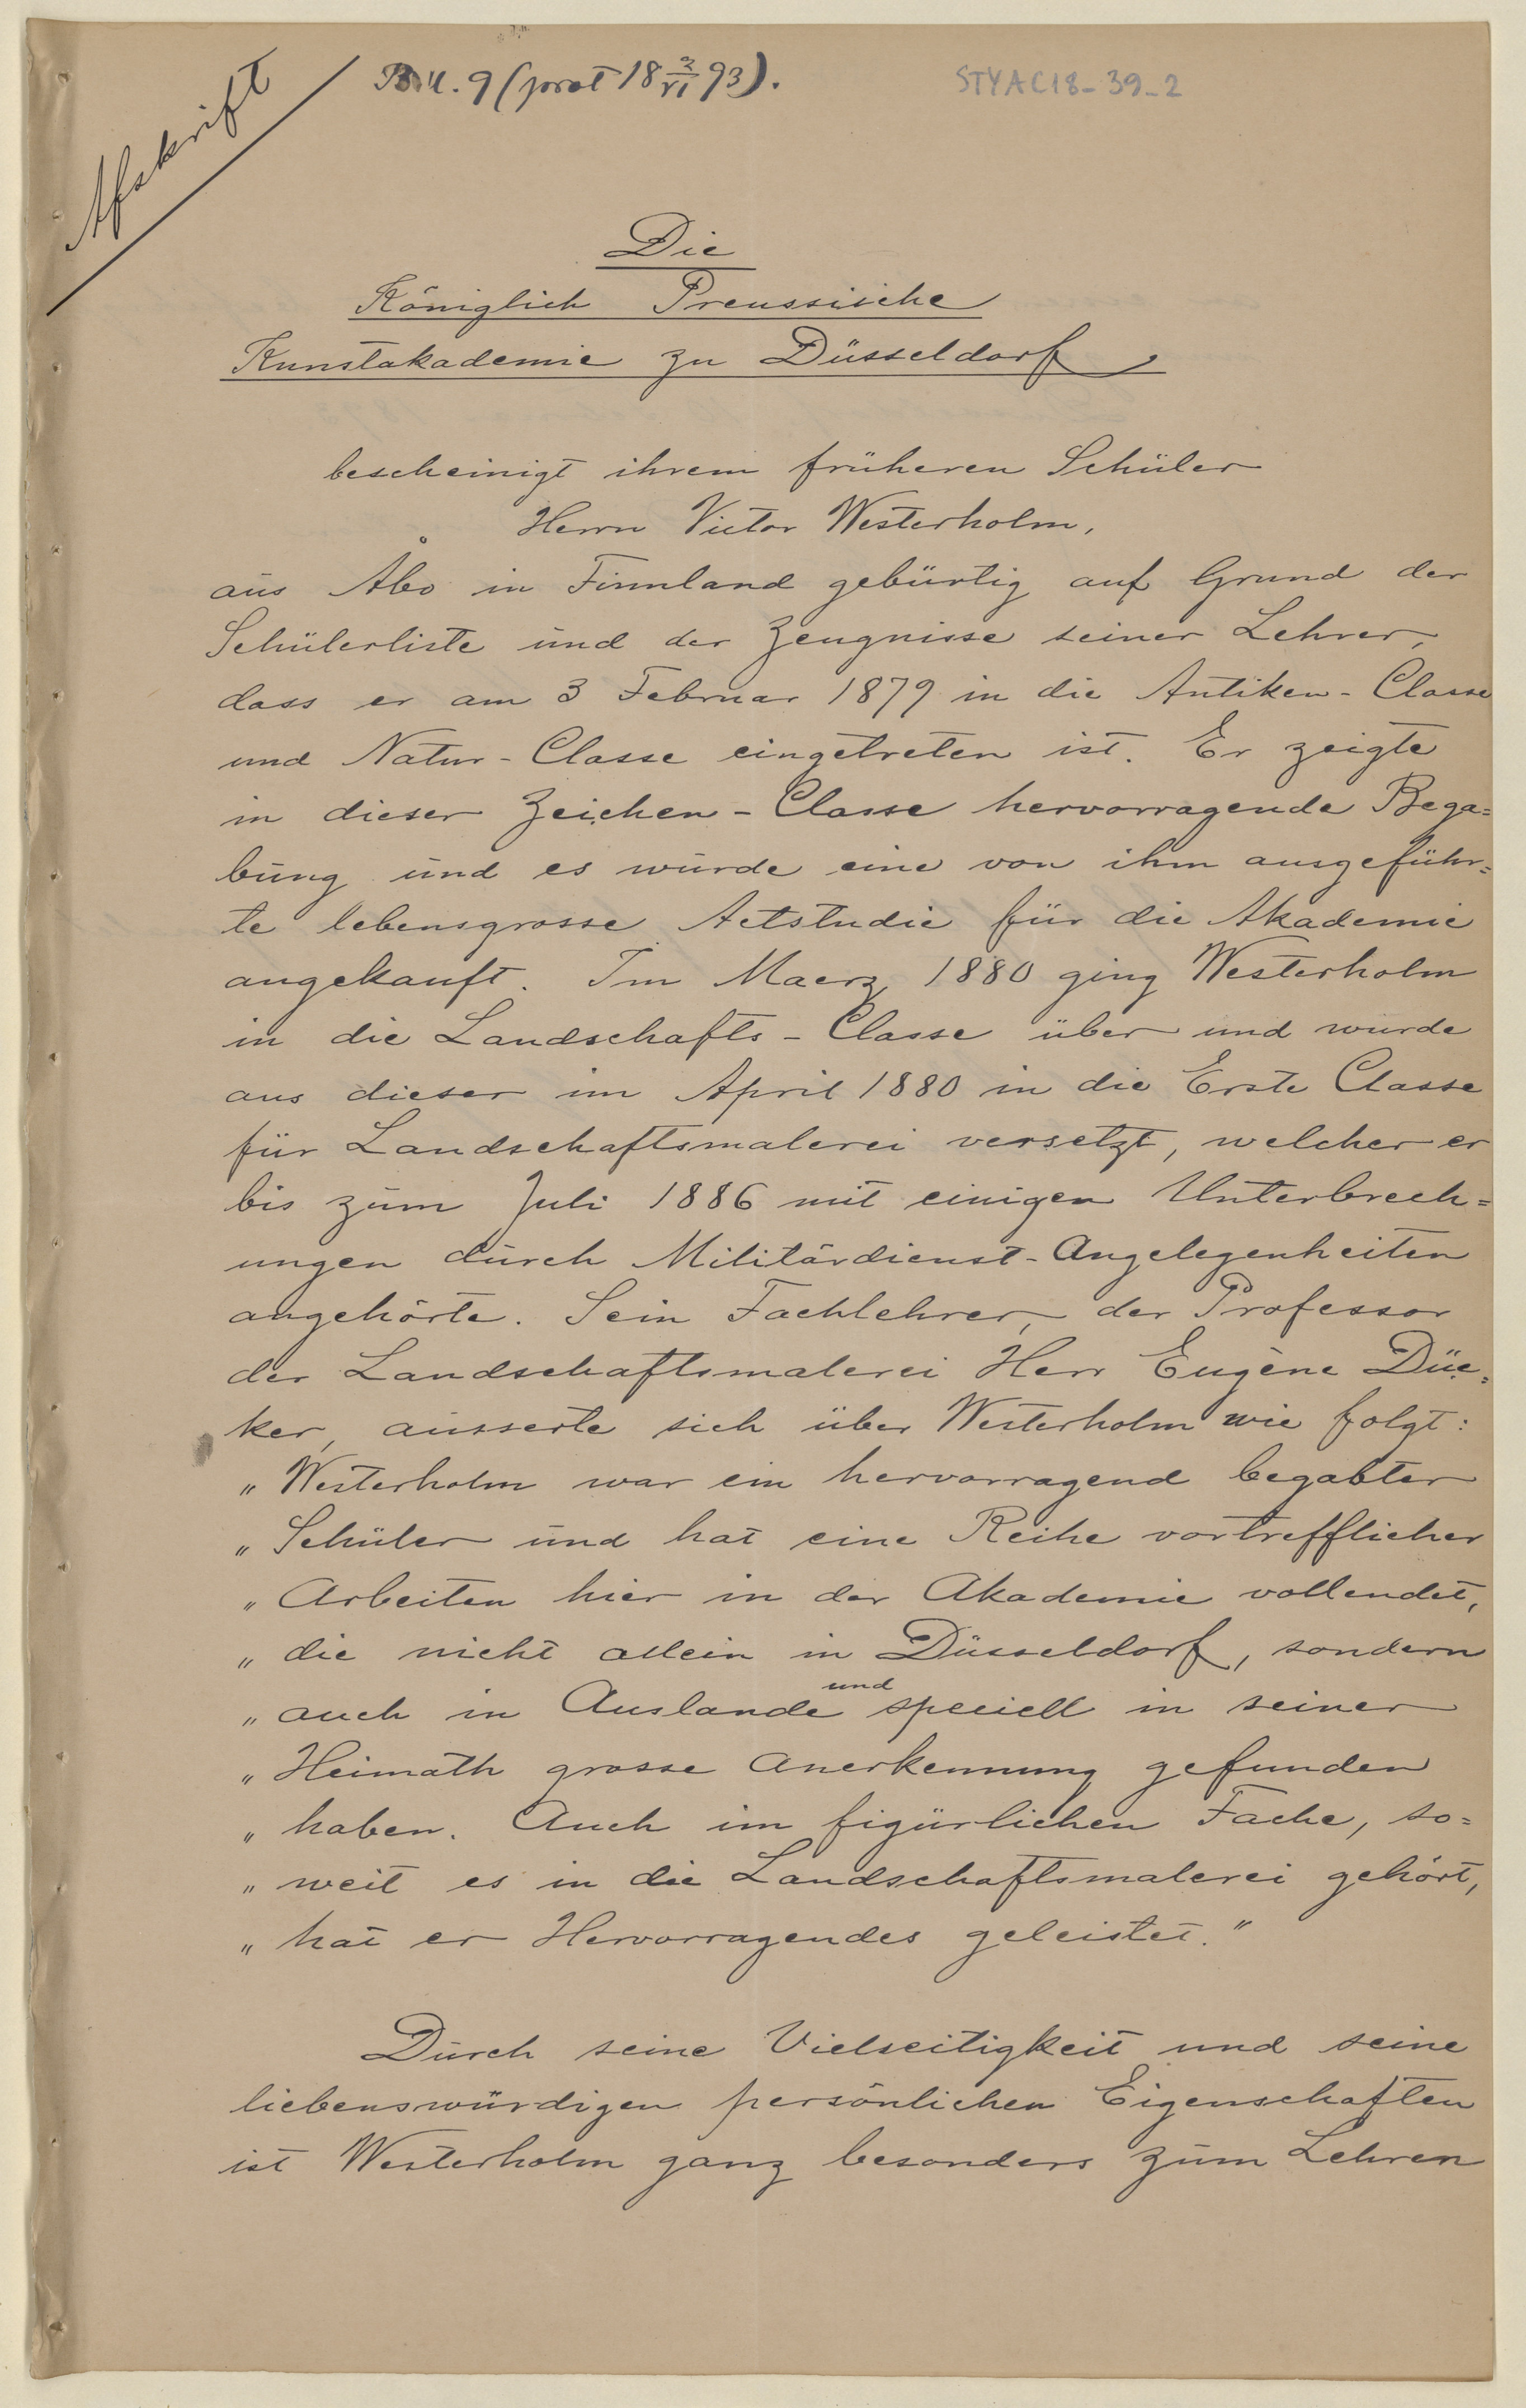 Afskrift
Bil. 9 (prot 18 3/VI 93).
STYAC18-39-2
Die
Königlich Preussische
Kunstakademie zu Düsseldorf,
bescheinigt ihrem früheren Schüler
Herrn Victor Westerholm,
aus Åbo in Finnland gebürtig auf Grund der
Schülerliste und der Zeugnisse seiner Lehrer,
dass er am 3 Februar 1879 in die Antiken-Classe
und Natur-Classe eingetreten ist. Er zeigte
in dieser Zeichen-Classe hervorragende Bega=
bung und es wurde eine von ihm ausgeführ=
te lebensgrosse Actstudie für die Akademie
angekauft. Im Maerz 1880 ging Westerholm
in die Landschafts-Classe über und wurde
aus dieser im April 1880 in die Erste Classe
für Landschaftsmalerei versetzt, welcher er
bis zum Juli 1886 mit einigen Unterbrech=
ungen durch Militärdienst-Angelegenheiten
angehörte. Sein Fachlehrer, der Professor
der Landschaftsmalerei Herr Eugène Düc=
ker, äusserte sich über Westerholm wie folgt:
„Westerholm war ein hervorragend begabter
„Schüler und hat eine Reihe vortrefflicher
„Arbeiten hier in der Akademie vollendet,
„die nicht allein in Düsseldorf, sondern
„auch in Auslande und speciell in seiner
„Heimath grosse Anerkennung gefunden
„haben. Auch im figürlichen Fache, so=
„weit es in die Landschaftsmalerei gehört,
„hat er Hervorragendes geleistet."
Durch seine Vielseitigkeit und seine
liebenswürdigen persönlichen Eigenschaften
ist Westerholm ganz besonders zum Lehren